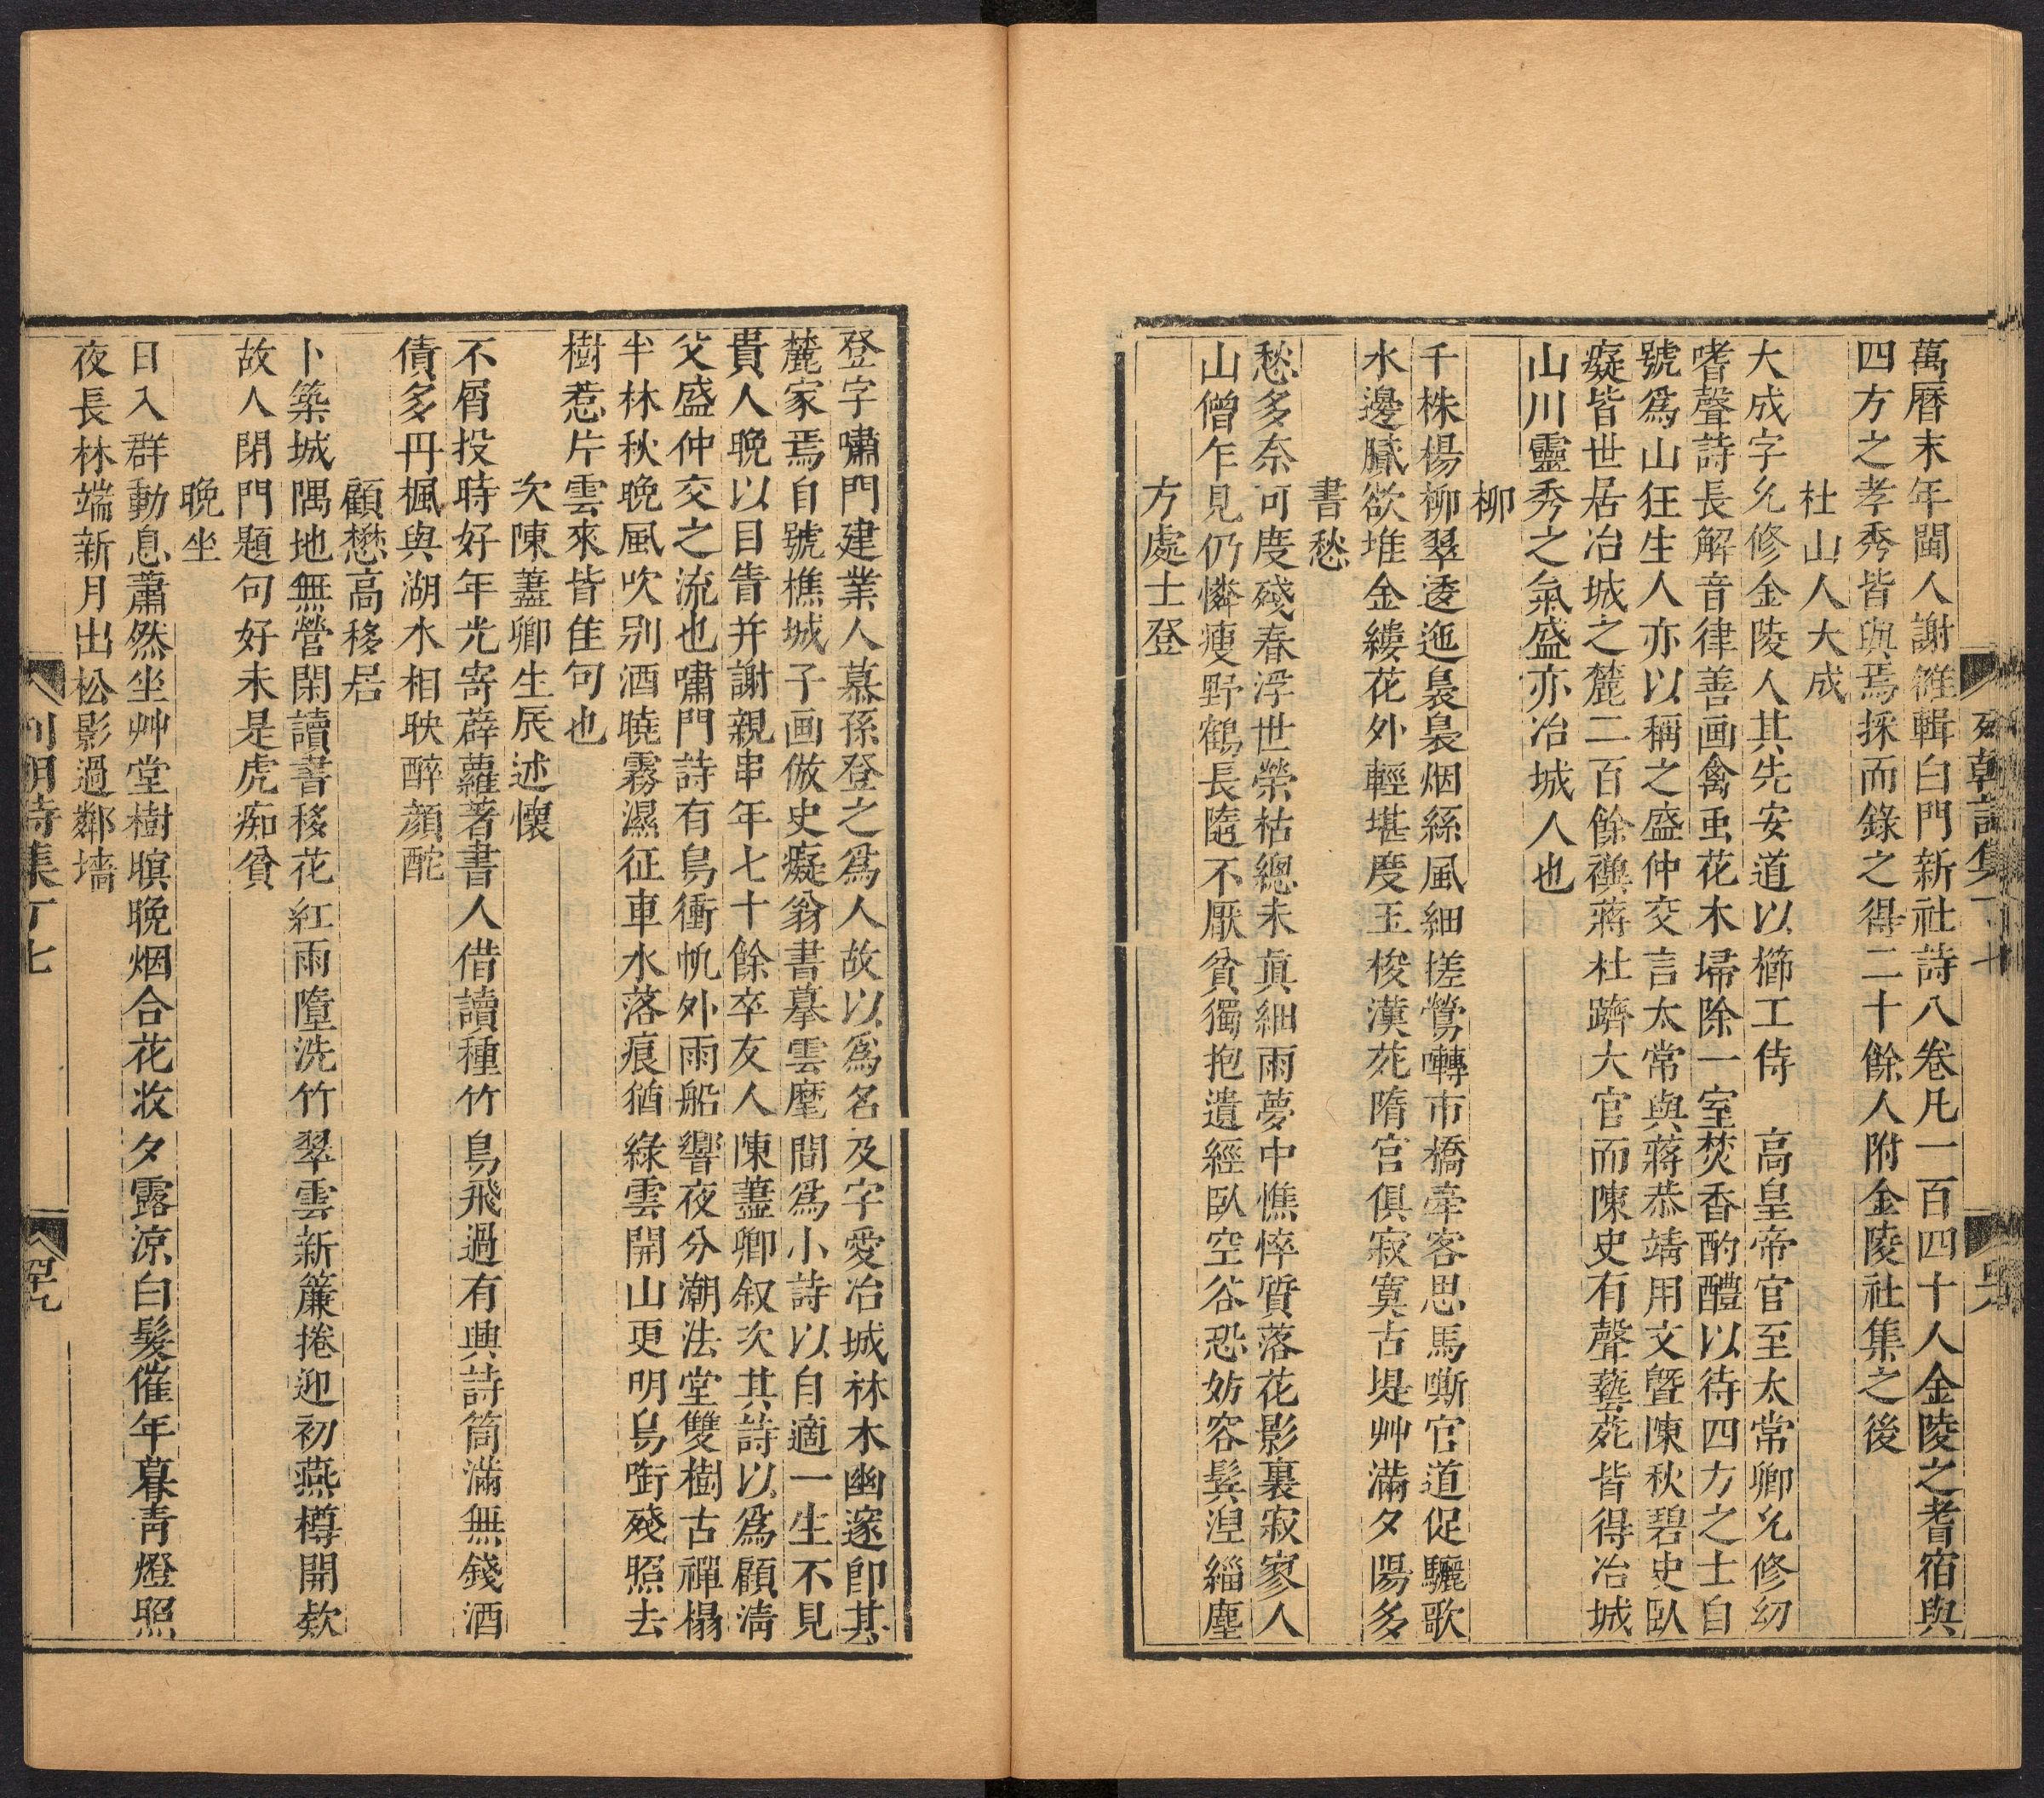 萬曆末年閩人謝雒輯白門新社詩八卷凡一百四十人金陵之耆宿與
四方之孝秀皆與焉採而錄之得二十餘人附金陵社集之後
杜山人大成
大成字允修金陵人其先安道以櫛工侍　高皇帝官至太常卿允修幼
嗜聲詩長解音律善画禽虫花木埽除一室焚香酌醴以待四方之士自
號為山狂生人亦以稱之盛仲交言太常與蔣恭靖用文曁陳秋碧史臥
癡皆世居冶城之麓二百餘禩蔣杜躋大官而陳史有聲藝苑皆得冶城
山川靈秀之氣盛亦冶城人也
柳
千株楊柳翠逶迤裊裊烟絲風細搓鶯囀市橋牽客思馬嘶官道促驪歌
水邊膩欲堆金縷花外輕堪度玉梭漢苑隋宮俱寂寞古堤艸滿夕陽多
書愁
愁多奈可度殘春浮世榮枯總未真細雨夢中憔悴質落花影裏寂寥人
山僧乍見仍憐瘦野鶴長隨不厭貧獨抱遺經臥空谷恐妨容髩涅緇塵
方處士登
登字嘯門建業人慕孫登之為人故以為名及字愛冶城林木幽邃即其
麓家焉自號樵城子画倣史癡翁書摹雲麾間為小詩以自適一生不見
貴人晚以目眚并謝親串年七十餘卒友人陳藎卿叙次其詩以為顧清
父盛仲交之流也嘯門詩有鳥衝帆外雨船響夜分潮法堂雙樹古禪榻
半林秋晚風吹別酒曉霧濕征車水落痕猶綠雲開山更明鳥啣殘照去
樹惹片雲來皆佳句也
次陳藎卿生辰述懷
不屑投時好年光寄薜蘿著書人借讀種竹鳥飛過有興詩筒滿無錢酒
債多丹楓與湖水相映醉顏酡
顧懋高移居
卜築城隅地無營閑讀書移花紅雨墮洗竹翠雲新簾捲迎初燕樽開欸
故人閉門題句好未是虎痴貧
晚坐
日入群動息蕭然坐艸堂樹暝晚烟合花收夕露涼白髮催年暮青燈照
夜長林端新月出松影過鄰墻
列朝詩集丁七